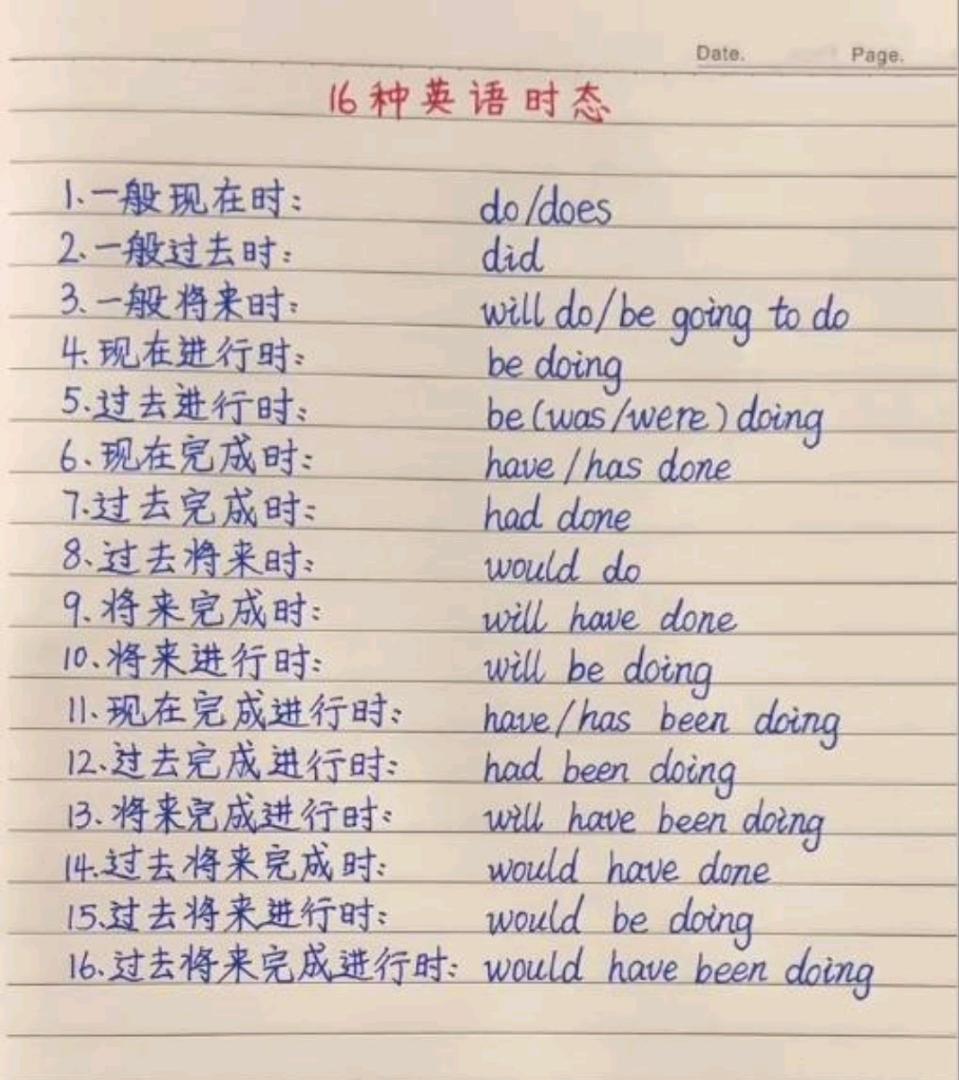 Date. Page.
16种英语时态
1.一般现在时: do/does
2.一般过去时: did
3.一般将来时: will do/be going to do
4.现在进行时: be doing
5.过去进行时: be(was/were)doing
6.现在完成时: have/has done
7.过去完成时: had done
8.过去将来时: would do
9.将来完成时: will have done
10.将来进行时: will be doing
11.现在完成进行时: have/has been doing
12.过去完成进行时: had been doing
13.将来完成进行时: will have been doing
14.过去将来完成时: would have done
15.过去将来进行时: would be doing
16.过去将来完成进行时: would have been doing